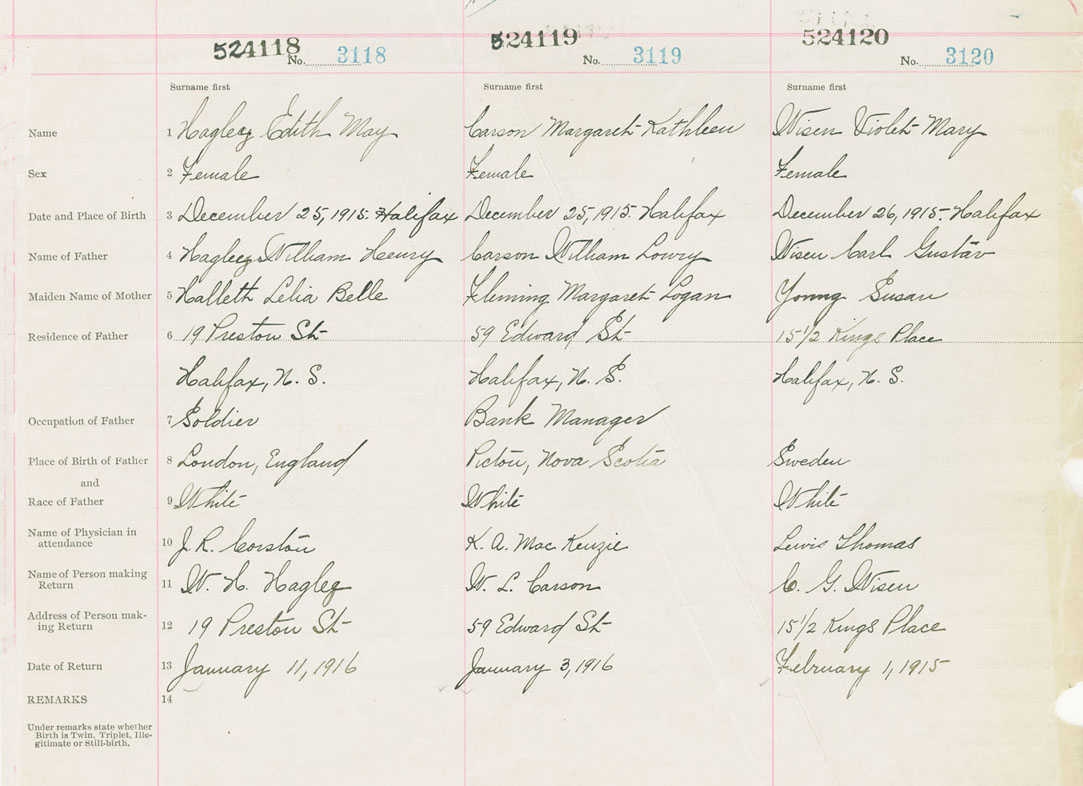 524118 524119 524120
No. 3118 No. 3119 No. 3120
Surname first Surname first Surname first
Name 1 Hagley Edith May Carson Margaret Kathleen Wisen Violet Mary
Sex 2 Female Female Female
Date and Place of Birth 3 December 25, 1915. Halifax December 25, 1915. Halifax December 26, 1915. Halifax
Name of Father 4 Hagley William Henry Carson William Lowry Wisen Carl Gustav
Maiden Name of Mother 5 Halleth Lelia Belle Fleming Margaret Logan Young Susan
Residence of Father 6 19 Preston St 59 Edward St 15 1/2 Kings Place
Halifax, N. S. Halifax, N. S. Halifax, N. S.
Occupation of Father 7 Soldier Bank Manager
Place of Birth of Father 8 London, England Pictou, Nova Scotia Sweden
and
Race of Father 9 White White White
Name of Physician in
attendance 10 J. R. Corston K. A. Mac Kenzie Lewis Thomas
Name of Person making
Return 11 W. H. Hagley W. L. Carson C. G. Wisen
Address of Person mak-
ing Return 12 19 Preston St 59 Edward St 15 1/2 Kings Place
Date of Return 13 January 11, 1916 January 3, 1916 February 1, 1915
REMARKS 14
Under remarks state whether
Birth is Twin, Triplet, Ille-
gitimate or Still-birth.